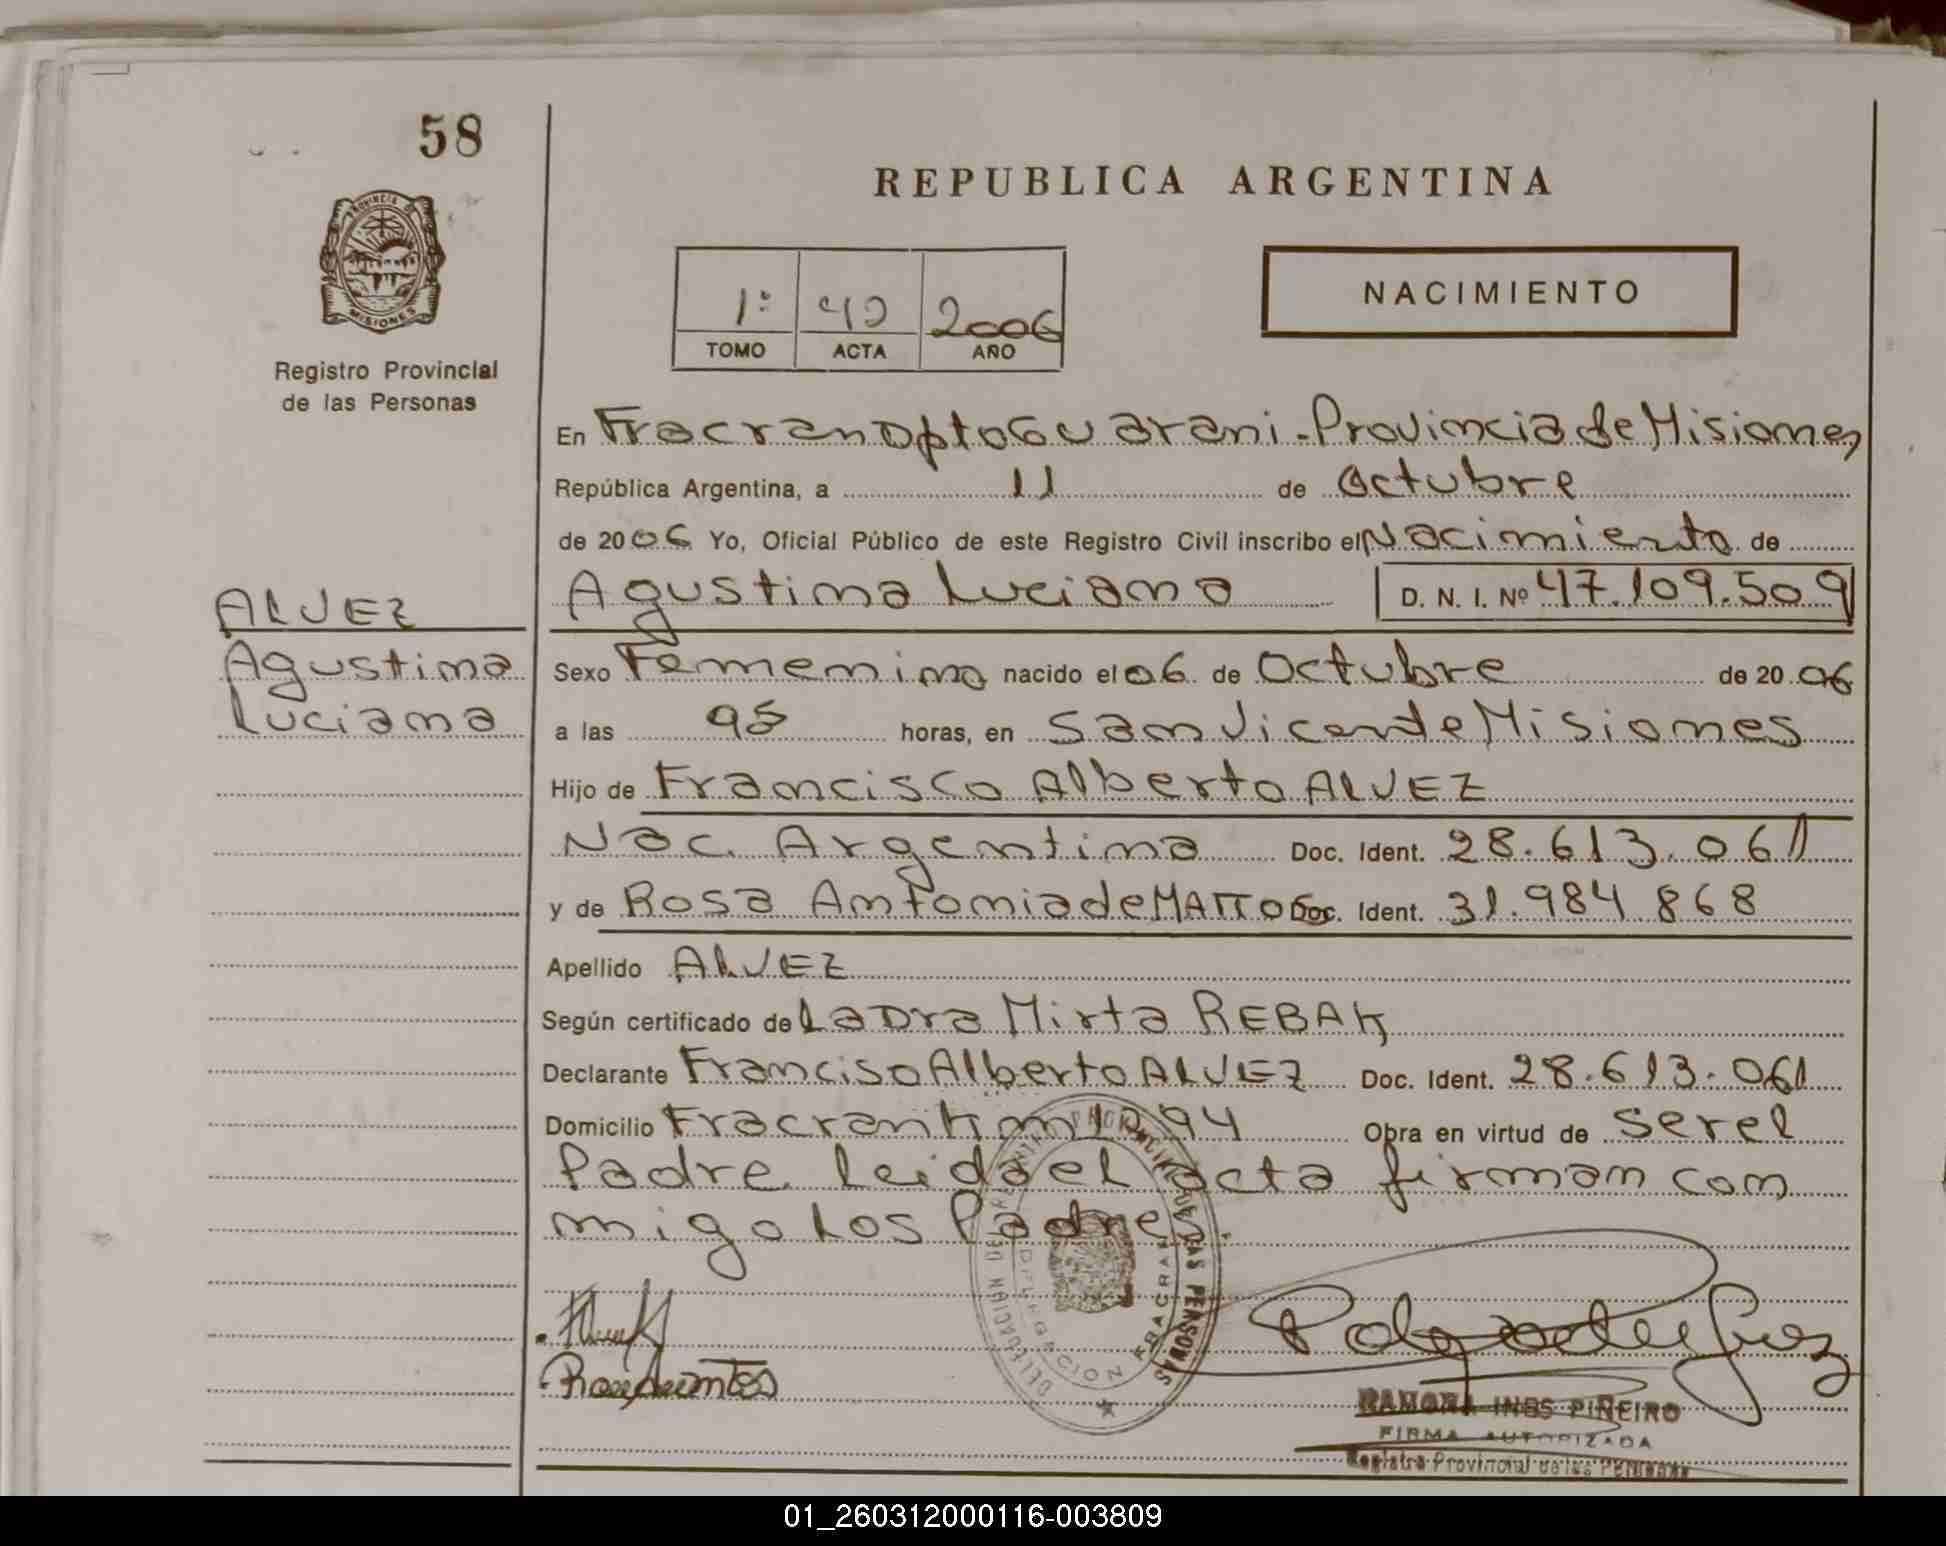 58
REPUBLICA ARGENTINA
PROVINCIA DE
MISIONES
Registro Provincial
de las Personas
1º 2006
TOMO ACTA AÑO
NACIMIENTO
En Fracran Dpto Guarani - Provincia de Misiones
República Argentina, a 11 de Octubre
de 2006 Yo, Oficial Público de este Registro Civil inscribo el Nacimiento de
Agustina Luciana D. N. I. Nº 47.109.509
ALVEZ
Agustina
Luciana
Sexo Femenino nacido el 06 de Octubre de 2006
a las horas, en San Vicente Misiones
Hijo de Francisco Alberto ALVEZ
Nac. Argentina Doc. Ident. 28.613.061
y de Rosa Antonia de MATTOS Doc. Ident. 31.984 868
Apellido ALVEZ
Según certificado de La Dra Mirta REBAK
Declarante Franciso Alberto ALVEZ Doc. Ident. 28.613.061
Domicilio Fracran Km 1294 Obra en virtud de ser el
Padre Leida el acta firman con
migo Los Padres.
DELEGACION FRACRAN
RAMONA INES PIÑEIRO
FIRMA AUTORIZADA
Registro Provincial de las Personas
01_260312000116-003809